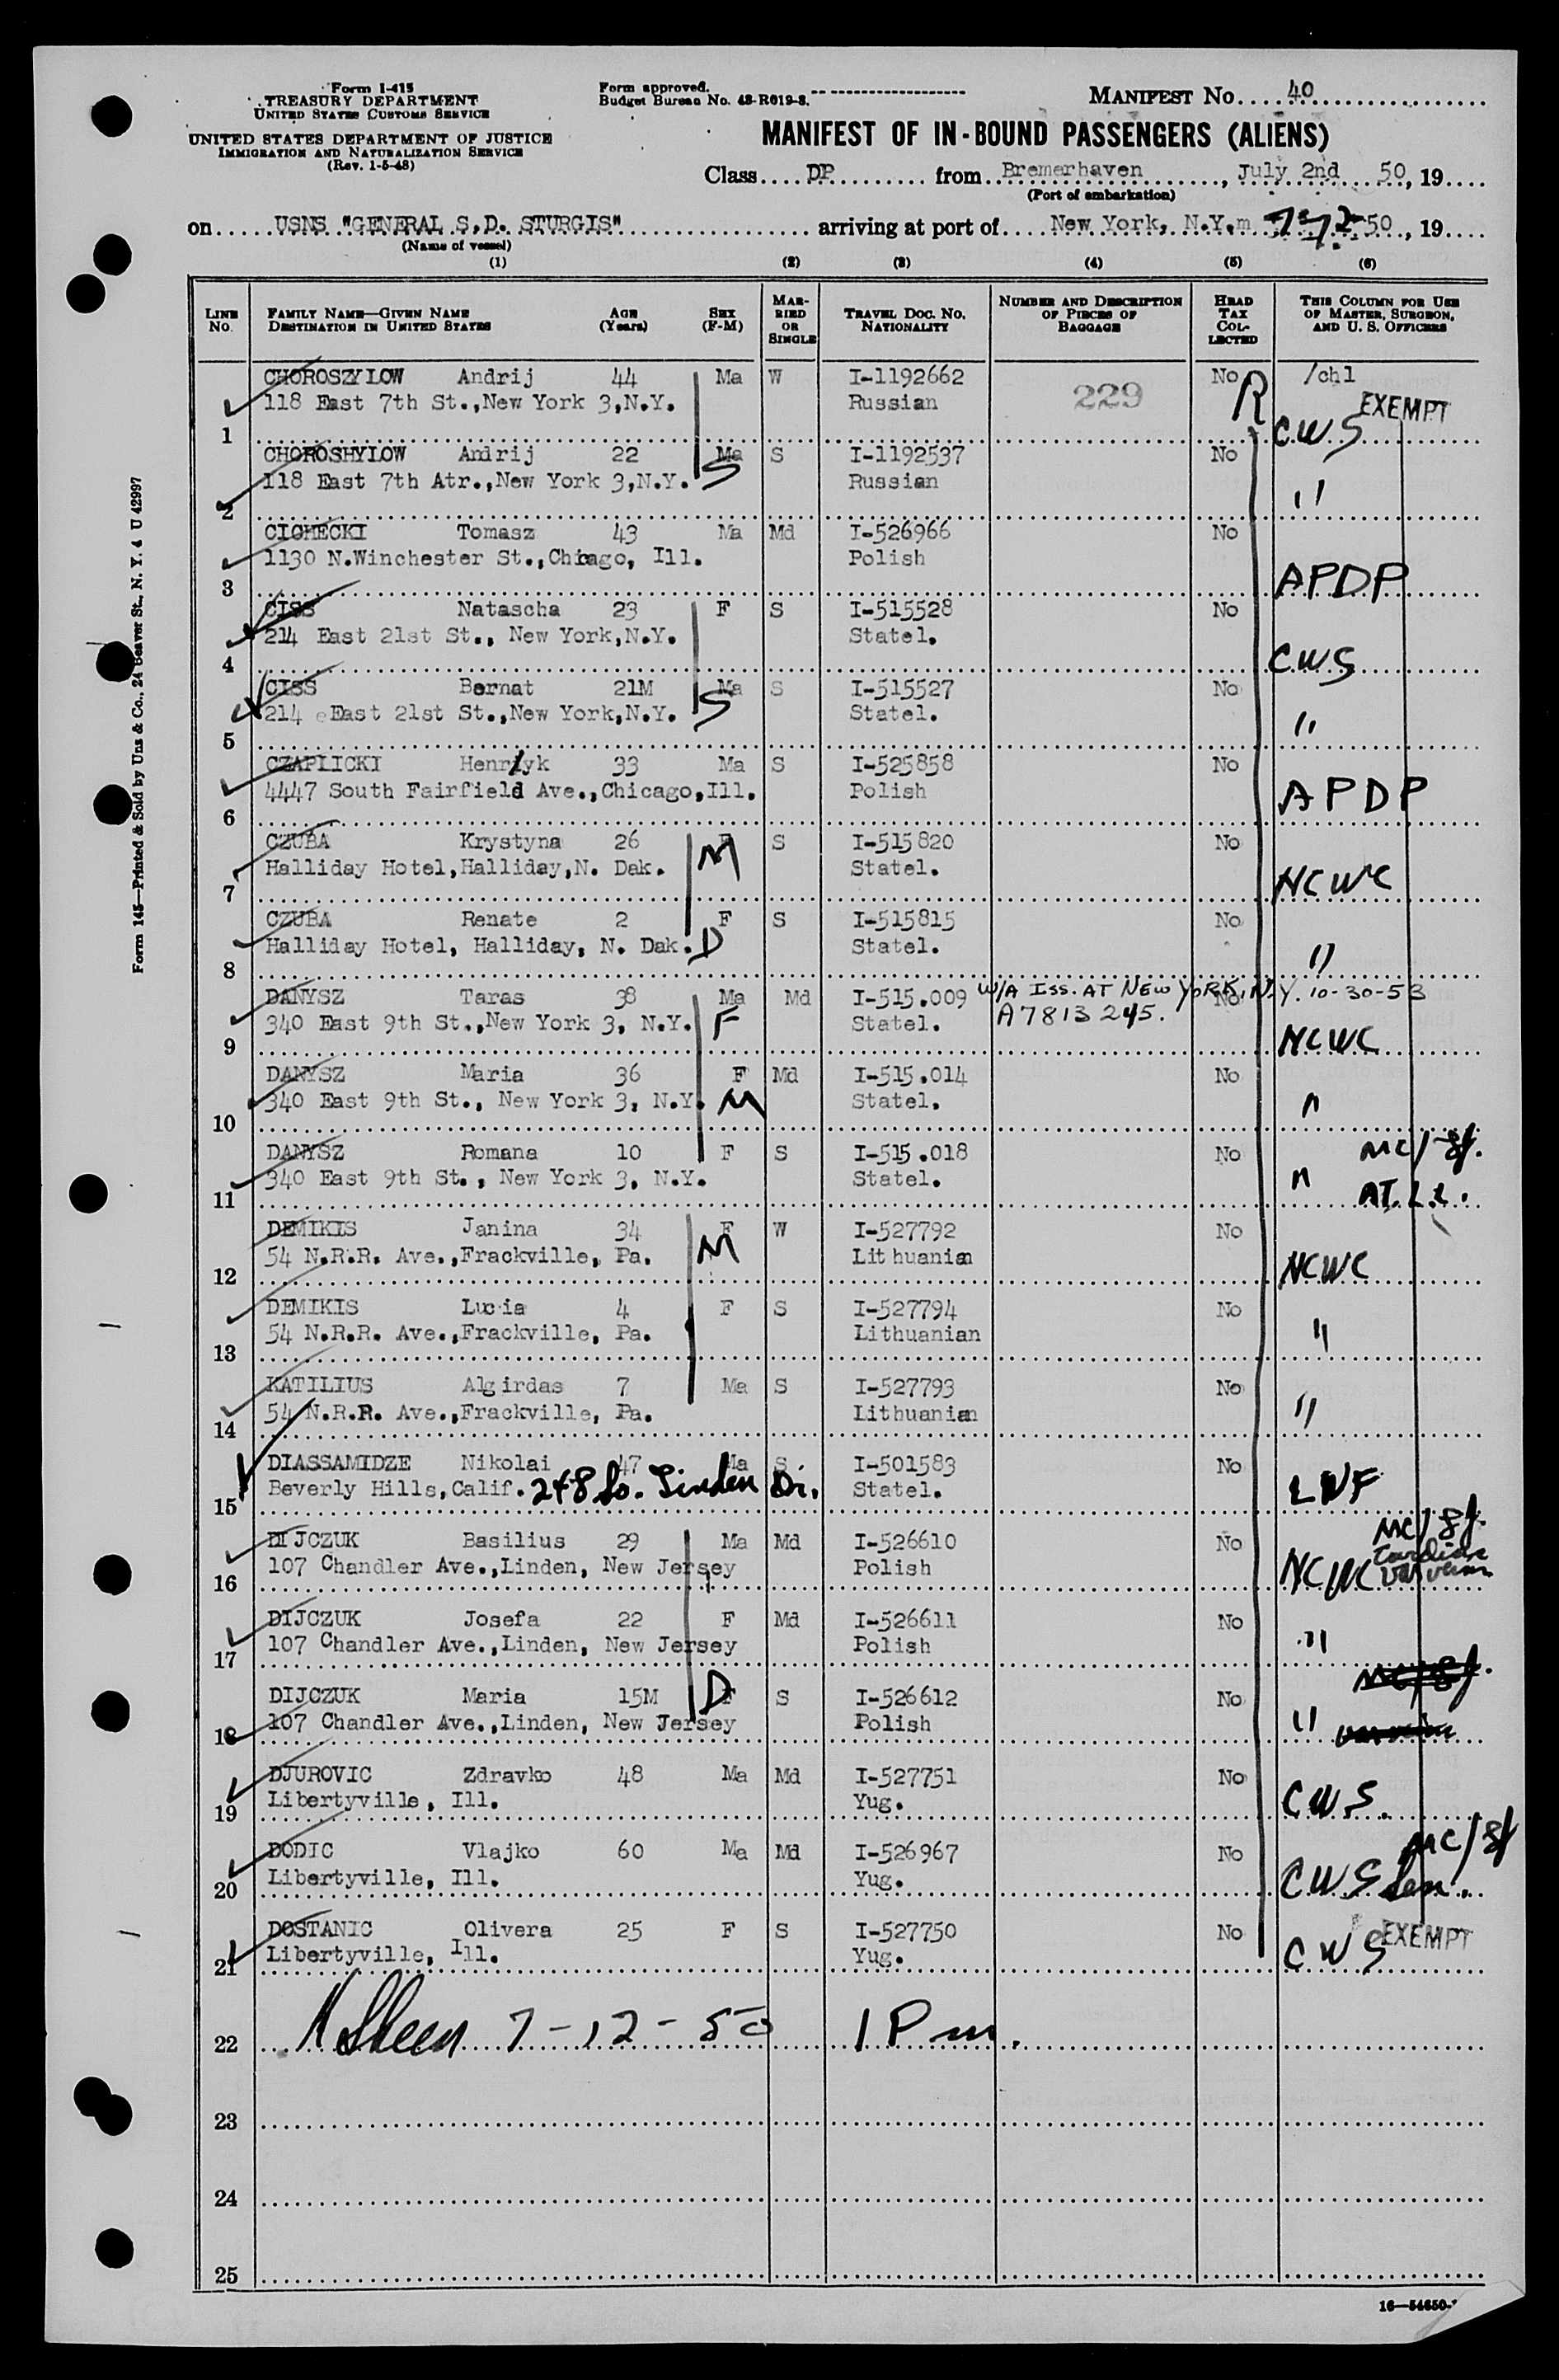 Form I-415
TREASURY DEPARTMENT
UNITED STATES CUSTOMS SERVICE
UNITED STATES DEPARTMENT OF JUSTICE
IMMIGRATION AND NATURALIZATION SERVICE
(Rev. 1-5-48)
Form approved.
Budget Bureau No. 43-R019-3.
MANIFEST NO. 40
MANIFEST OF IN-BOUND PASSENGERS (ALIENS)
Class DP from Bremerhaven, July 2nd 50, 19
(Port of embarkation)
on USNS "GENERAL S.D. STURGIS" arriving at port of New York, N.Y.m 50, 19
(Name of vessel)
(1) (2) (3) (4) (5) (6)
LINE NO. FAMILY NAME—GIVEN NAME DESTINATION IN UNITED STATES AGE (Years) SEX (F-M) MARRIED OR SINGLE TRAVEL DOC. NO. NATIONALITY NUMBER AND DESCRIPTION OF PIECES OF BAGGAGE HEAD TAX COLLECTED THIS COLUMN FOR USE OF MASTER, SURGEON, AND U. S. OFFICERS
CHOROSZYLOW Andrij 44 Ma W I-1192662 229 No R /chl
118 East 7th St.,New York 3,N.Y. Russian EXEMPT
1 CWS
CHOROSHYLOW Andrij 22 Ma S I-1192537 No
118 East 7th Atr.,New York 3,N.Y. S Russian
2 "
CICHECKI Tomasz 43 Ma Md I-526966 No
1130 N.Winchester St.,Chicago, Ill. Polish
3 APDP
CISS Natascha 23 F S I-515528 No
214 East 21st St., New York,N.Y. Statel.
4 CWS
CISS Bernat 21M Ma S I-515527 No
214 eEast 21st St.,New York,N.Y. S Statel.
5 "
CZAPLICKI Henryk 33 Ma S I-525858 No
4447 South Fairfield Ave.,Chicago,Ill. Polish
6 APDP
CZUBA Krystyna 26 F S I-515820 No
Halliday Hotel,Halliday,N. Dak. M Statel.
7 NCWC
CZUBA Renate 2 F S I-515815 No
Halliday Hotel, Halliday, N. Dak. D Statel.
8 "
DANYSZ Taras 38 Ma Md I-515.009 W/A ISS. AT NEW YORK, N.Y. 10-30-53 No
340 East 9th St.,New York 3, N.Y. F Statel. A7813245.
9 NCWC
DANYSZ Maria 36 F Md I-515.014 No
340 East 9th St., New York 3, N.Y. M Statel.
10 "
DANYSZ Romana 10 F S I-515.018 No
340 East 9th St., New York 3, N.Y. Statel. "
11
DEMIKIS Janina 34 F W I-527792 No
54 N.R.R. Ave.,Frackville, Pa. M Lithuanian
12 NCWC
DEMIKIS Lucia 4 F S I-527794 No
54 N.R.R. Ave.,Frackville, Pa. Lithuanian
13 "
KATILIUS Algirdas 7 Ma S I-527793 No
54 N.R.R. Ave.,Frackville, Pa. Lithuanian
14 "
DIASSAMIDZE Nikolai 47 Ma S I-501583 No
Beverly Hills,Calif. 248 So. Linden Dr. Statel.
15
DIJCZUK Basilius 29 Ma Md I-526610 No
107 Chandler Ave.,Linden, New Jersey Polish
16 NCWC
DIJCZUK Josefa 22 F Md I-526611 No
107 Chandler Ave.,Linden, New Jersey Polish
17 "
DIJCZUK Maria 15M F S I-526612 No
107 Chandler Ave.,Linden, New Jersey D Polish
18 "
DJUROVIC Zdravko 48 Ma Md I-527751 No
Libertyville, Ill. Yug.
19 CWS.
DODIC Vlajko 60 Ma Md I-526967 No
Libertyville, Ill. Yug.
20 CWS
DOSTANIC Olivera 25 F S I-527750 No EXEMPT
Libertyville, Ill. Yug.
21 CWS
22 7-12-50 1 Pm.
23
24
25
Form 145—Printed & Sold by Unz & Co., 24 Beaver St., N. Y. 4 U 42997